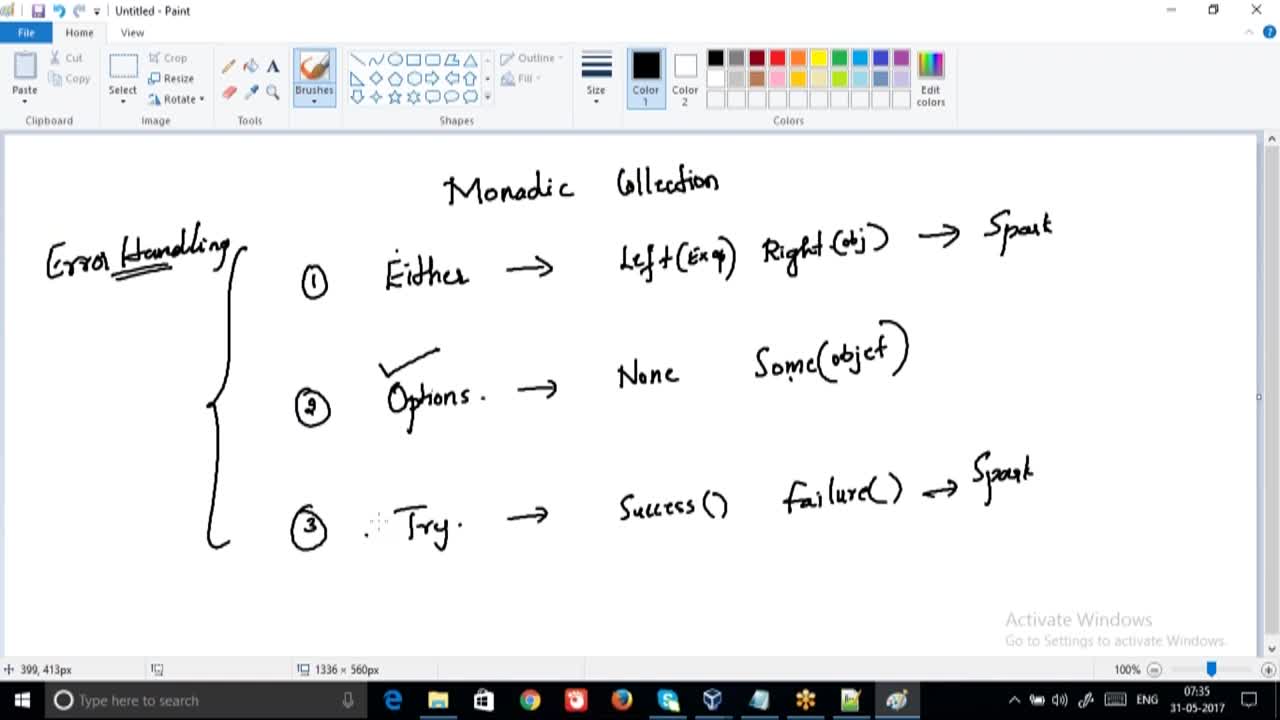 Untitled - Paint
File Home View
Paste Cut Copy Select Crop Resize Rotate Brushes Outline Fill Size Color 1 Color 2 Edit colors
Clipboard Image Tools Shapes Colors
Monadic Collection
Error Handling
1 Either → Left(Exp) Right(obj) → Spark
2 Options. → None Some(objet)
3 Try. → Success() failure() → Spark
Activate Windows
Go to Settings to activate Windows.
399, 413px 1336 × 560px 100%
Type here to search ENG 07:35
31-05-2017